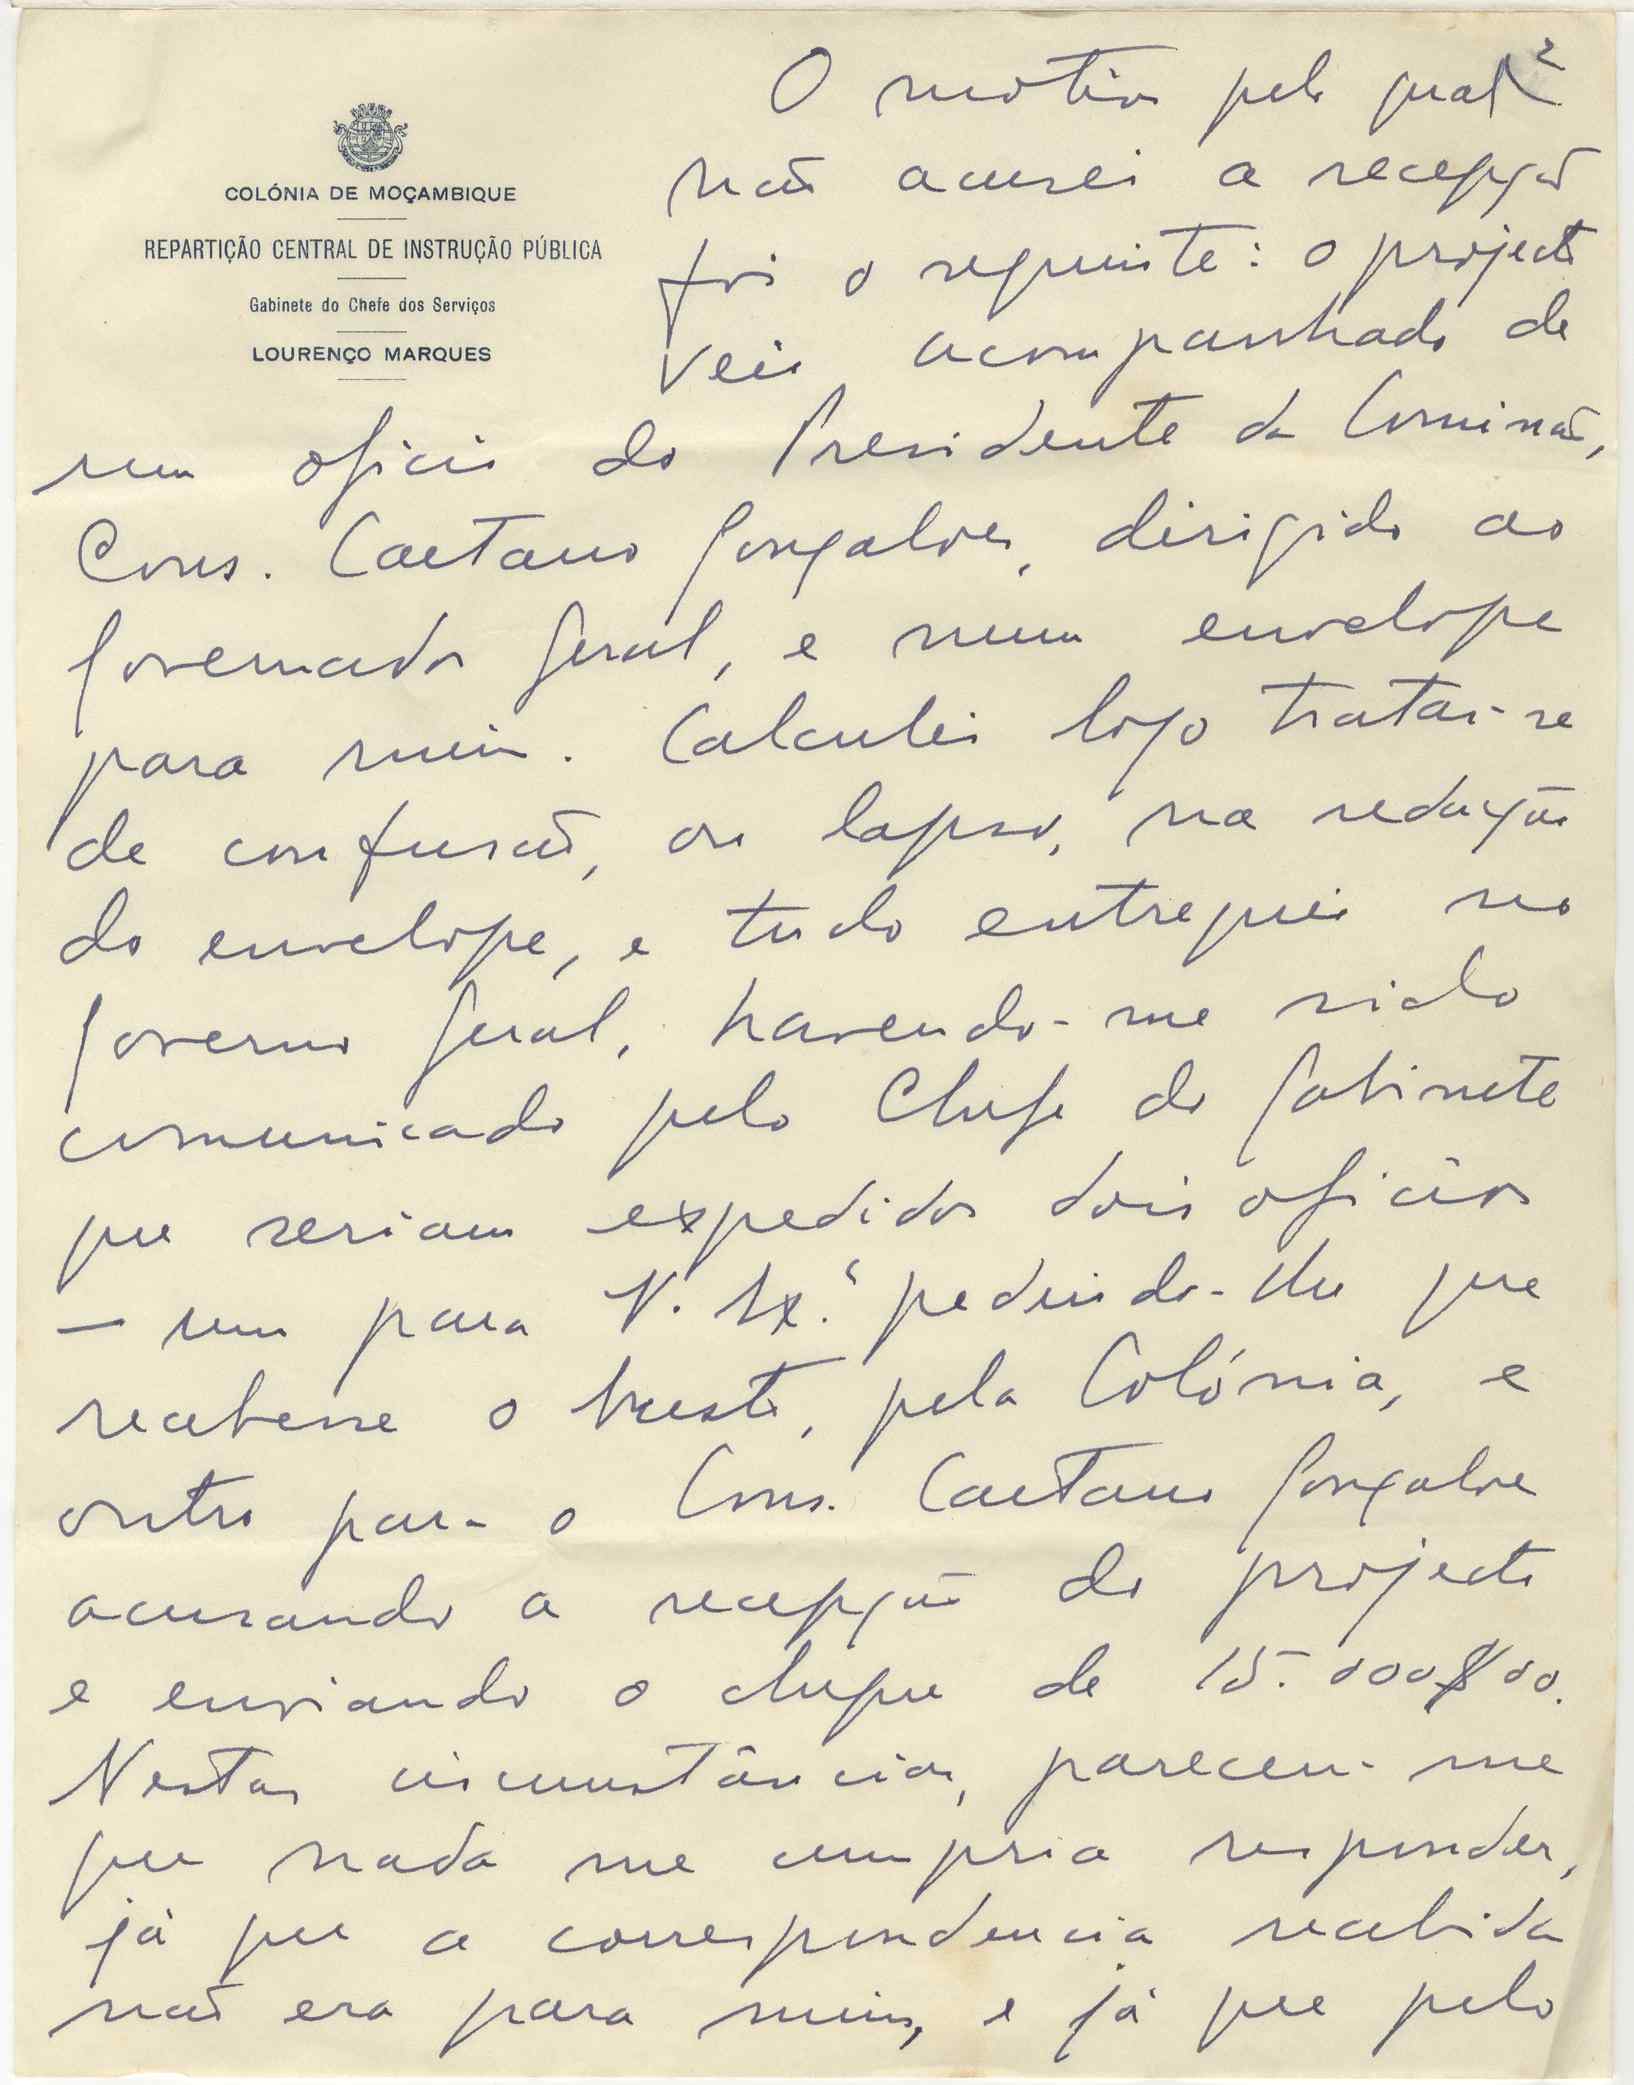 2
COLÓNIA DE MOÇAMBIQUE
REPARTIÇÃO CENTRAL DE INSTRUÇÃO PÚBLICA
Gabinete do Chefe dos Serviços
LOURENÇO MARQUES
O motivo pelo qual
não acusei a recepção
foi o seguinte: o projecto
veio acompanhado de
um oficio do Presidente da Comissão,
Cons. Caetano Gonçalves, dirigido ao
Governador Geral, e num envelope
para mim. Calculei logo tratar-se
de confusão, ou lapso, na redação
do envelope, e tudo entreguei no
Governo Geral, havendo-me sido
comunicado pelo Chefe do Gabinete
que seriam expedidos dois oficios
— um para V. Ex.ª pedindo-lhe que
recebesse o busto, pela Colónia, e
outro para o Cons. Caetano Gonçalves
acusando a recepção do projecto
e enviando o cheque de 15.000$00.
Nestas circunstâncias, pareceu-me
que nada me cumpria responder,
já que a correspondencia recebida
não era para mim, e já que pelo